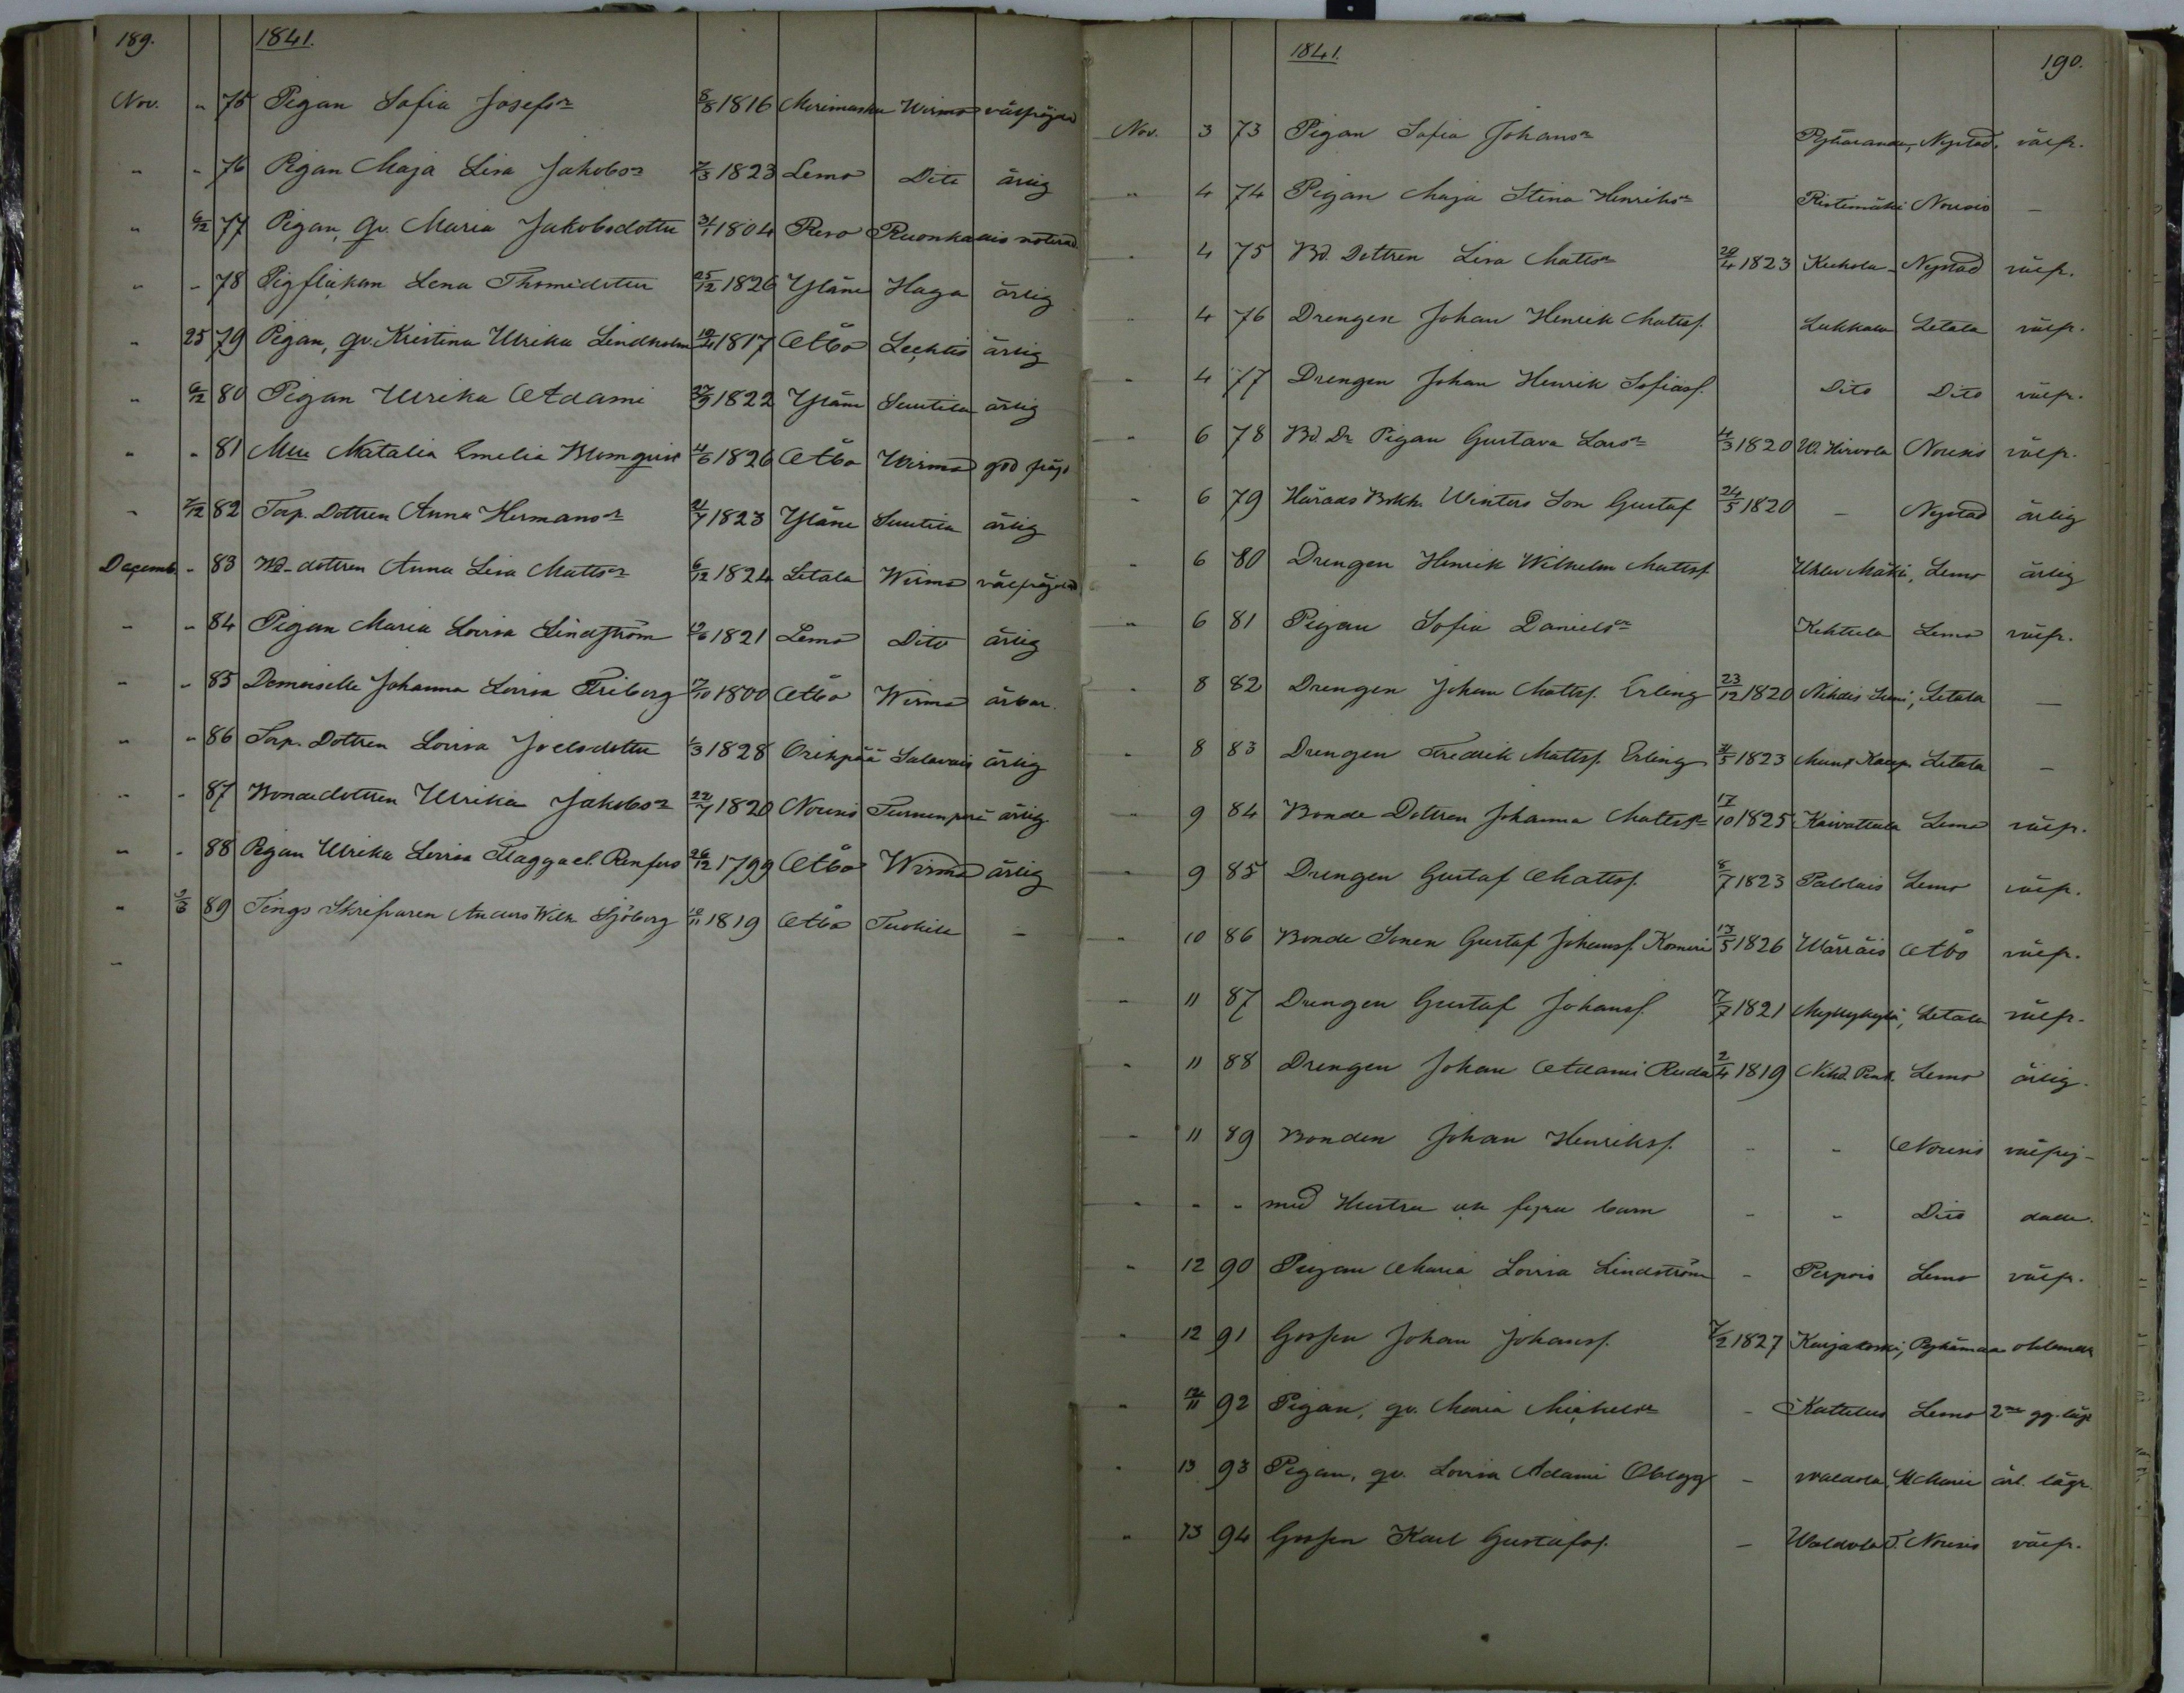 189. 1841.
Nov. " 75 Pigan Sofia Josefsr 8/8 1816 Merimasku Wirmo välfräjdad
" " 76 Pigan Maja Lisa Jakobsr 7/3 1823 Lemo Dito ärlig
" 6/12 77 Pigan, qv. Maria Jakobsdotter 31/1 1804 Reso Ruonka noterad
" " 78 Pigflickan Lena Thomedotter 25/12 1826 Yläne Haga ärlig
" 25 79 Pigan, qv. Kristina Ulrika Lindholm 1817 Åbo Lechtis ärlig
" 6/12 80 Pigan Ulrika Adami 27/9 1822 Yläne Suutila ärlig
" " 81 Mll Natalia Emelia Blomqvist 1826 Åbo Wirmo god fräjd
" 7/12 82 Torp. Dottren Anna Hermansr 21/7 1823 Yläne Suutila ärlig
Decemb. " 83 Bd. dottren Anna Lisa Mattsr 6/12 1824 Letala Wirmo välfräjdad
" " 84 Pigan Maria Lovisa Lindström 1821 Lemo Dito ärlig
" " 85 Demoiselle Johanna Lovisa Friberg 7/10 1800 Åbo Wirmo ärbar.
" " 86 Torp. Dottren Lovisa Joelsdotter 1/3 1828 Oripää Salavais ärlig
" " 87 Bondedottren Ulrika Jakobsr 22/7 1820 Nousis Turunperä ärlig
" " 88 Pigan Ulrika Lovisa Flagga el. Renfors 26/12 1799 Åbo Wirmo ärlig
" 89 Tings Skrifvaren Anders Wilh. Sjöberg 10/11 1819 Åbo Tuokila –
"
1841. 190.
Nov. 3 73 Pigan Sofia Johansr Pyhäranda, Nystad, välfr.
" 4 74 Pigan Maja Stina Henriksr Ristimäki Nousis –
" 4 75 Bd. Dottren Lisa Mattsr 29/4 1823 Kukola Nystad välfr.
" 4 76 Drengen Johan Henrik Mattsf. Lukkala Letala välfr.
" 4 77 Drengen Johan Henrik Sofiasf. Dito Dito välfr.
" 6 78 Bd. Dr Pigan Gustava Larsr 4/3 1820 W. Hirvola Nousis välfr.
" 6 79 Härads Bokh. Winters Son Gustaf 24/5 1820 – Nystad ärlig
" 6 80 Drengen Henrik Wilhelm Mattsf. Uhlu Mäki, Lemo ärlig
" 6 81 Pigan Sofia Danielsr Kehtula Lemo välfr.
" 8 82 Drengen Johan Mattsf. Erling 23/12 1820 Nihdis Suni, Letala –
" 8 83 Drengen Fredrik Mattsf. Erling 31/5 1823 Letala –
" 9 84 Bonde Dottren Johanna Mattsr 17/10 1825 Kaivattula Lemo välfr.
" 9 85 Drengen Gustaf Mattsf. 8/7 1823 Palolais Lemo välfr.
" 10 86 Bonde Sonen Gustaf Johansf. Komeri 13/5 1826 Wärräis Åbo välfr.
" 11 87 Drengen Gustaf Johansf. 7/7 1821 Myllykylä, Letala välfr.
" 11 88 Drengen Johan Adami Ruda 2/4 1819 Nihd. Pent. Lemo ärlig.
" 11 89 Bonden Johan Henriksf. " " Nousis välfrej–
" " " med Hustru och fyra barn " " Dito
" 12 90 Pigan Maria Lovisa Lindström – Perpois Lemo välfr.
" 12 91 Gossen Johan Johansf. 7/2 1827 Karjakoski, Pyhämaa
" 12/11 92 Pigan, qv. Maria Michelsr – Kattelus Lemo 2ne gg. lägr
" 13 93 Pigan, qv. Lovisa Adami Oblygg – Waldola, St Marie ärl. lägr.
" 13 94 Gossen Karl Gustafsf. – Waldola T. Nousis välfr.